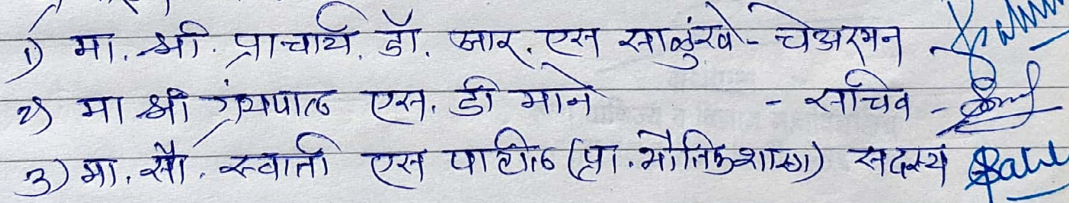 १) मा. श्री. प्राचार्य. डॉ. आर. एस साळुंखे - चेअरमन
२) मा श्री ग्रंथपाल एस. डी माने - सचिव -
३) मा. सौ. स्वाती एस पाटील (प्रा. भौतिकशास्त्र) सदस्य Patil